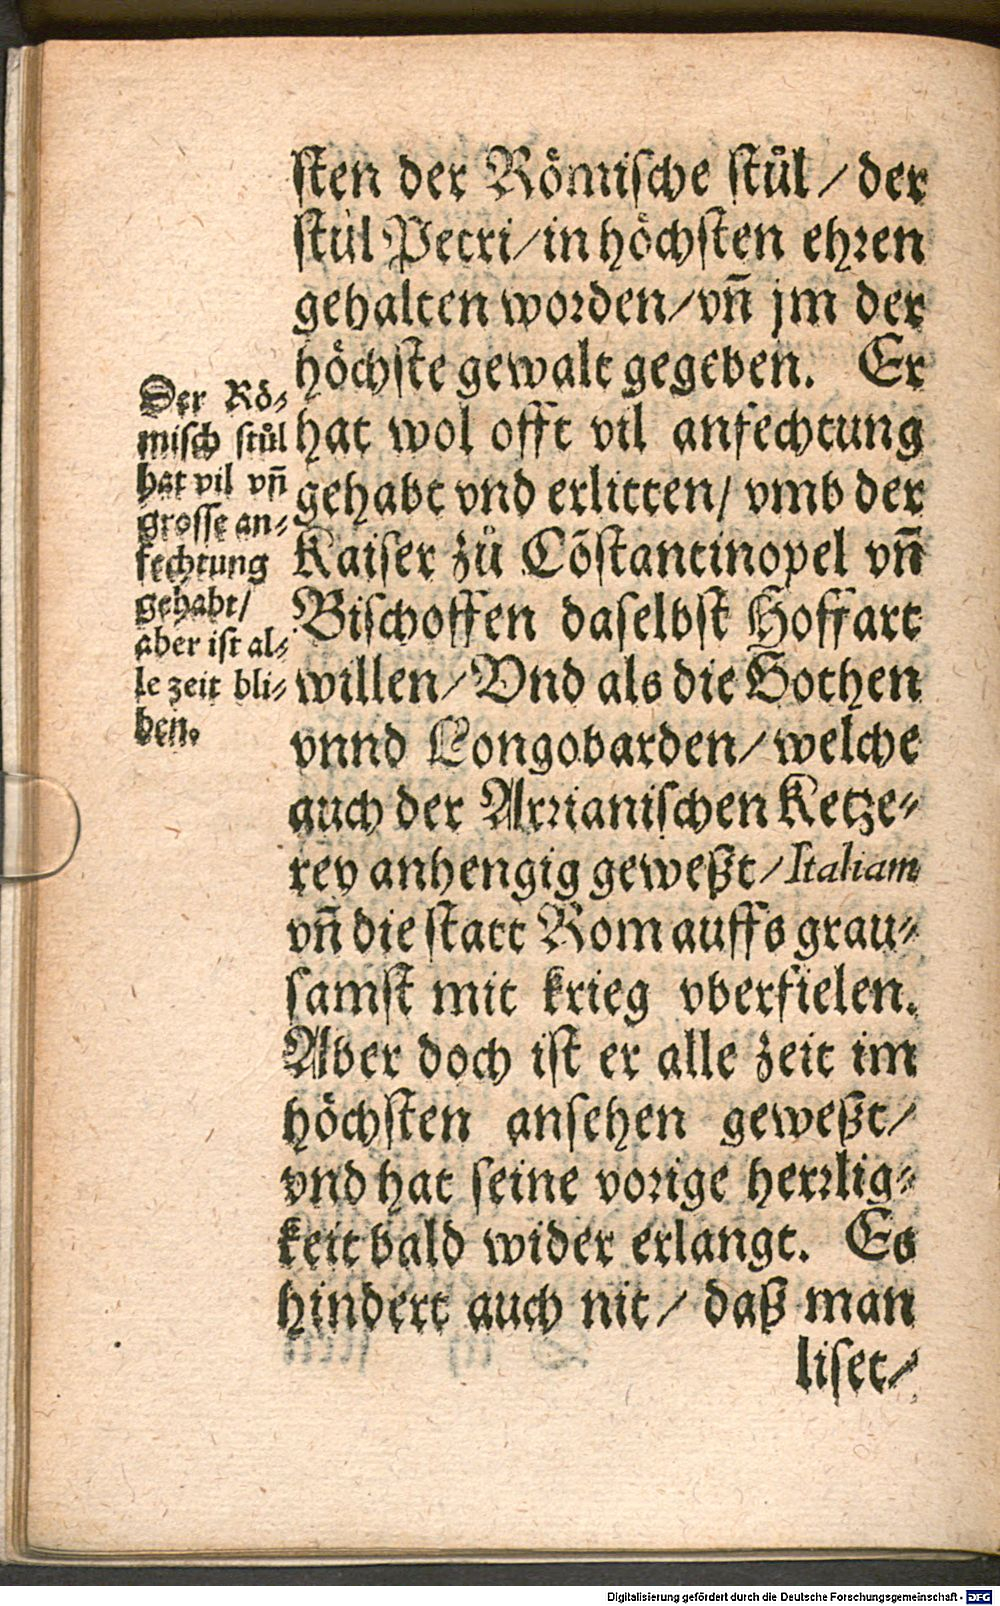 ſten der Römiſche ſtůl / der
ſtůl Petri / in höchſten ehren
gehalten worden / vñ jm der
höchſte gewalt gegeben. Er
hat wol offt vil anfechtung
gehabt vnd erlitten / vmb der
Kaiſer zů Cõſtantinopel vñ
Biſchoffen daſelbſt Hoffart
willen / Vnd als die Gothen
vnnd Longobarden / welche
auch der Arrianiſchen Ketze⸗
rey anhengig geweßt / Italiam
vñ die ſtatt Rom auffs grau⸗
ſamſt mit krieg vberfielen.
Aber doch iſt er alle zeit im
höchſten anſehen geweßt /
vnd hat ſeine vorige herrlig⸗
keit bald wider erlangt. Es
hindert auch nit / daß man
liſet /
Der Rö⸗
miſch ſtůl
hat vil vñ
groſſe an⸗
fechtung
gehabt /
aber iſt al⸗
le zeit bli⸗
ben.
Digitalisierung gefördert durch die Deutsche Forschungsgemeinschaft - DFG